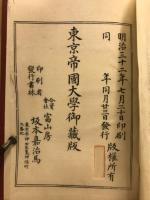 明治三十二年七月二十日印刷
同年同月廿三日發行
版權所有
東京帝國大學御藏版
印刷者
發行書林
合資會社
富山房
坂本嘉治馬